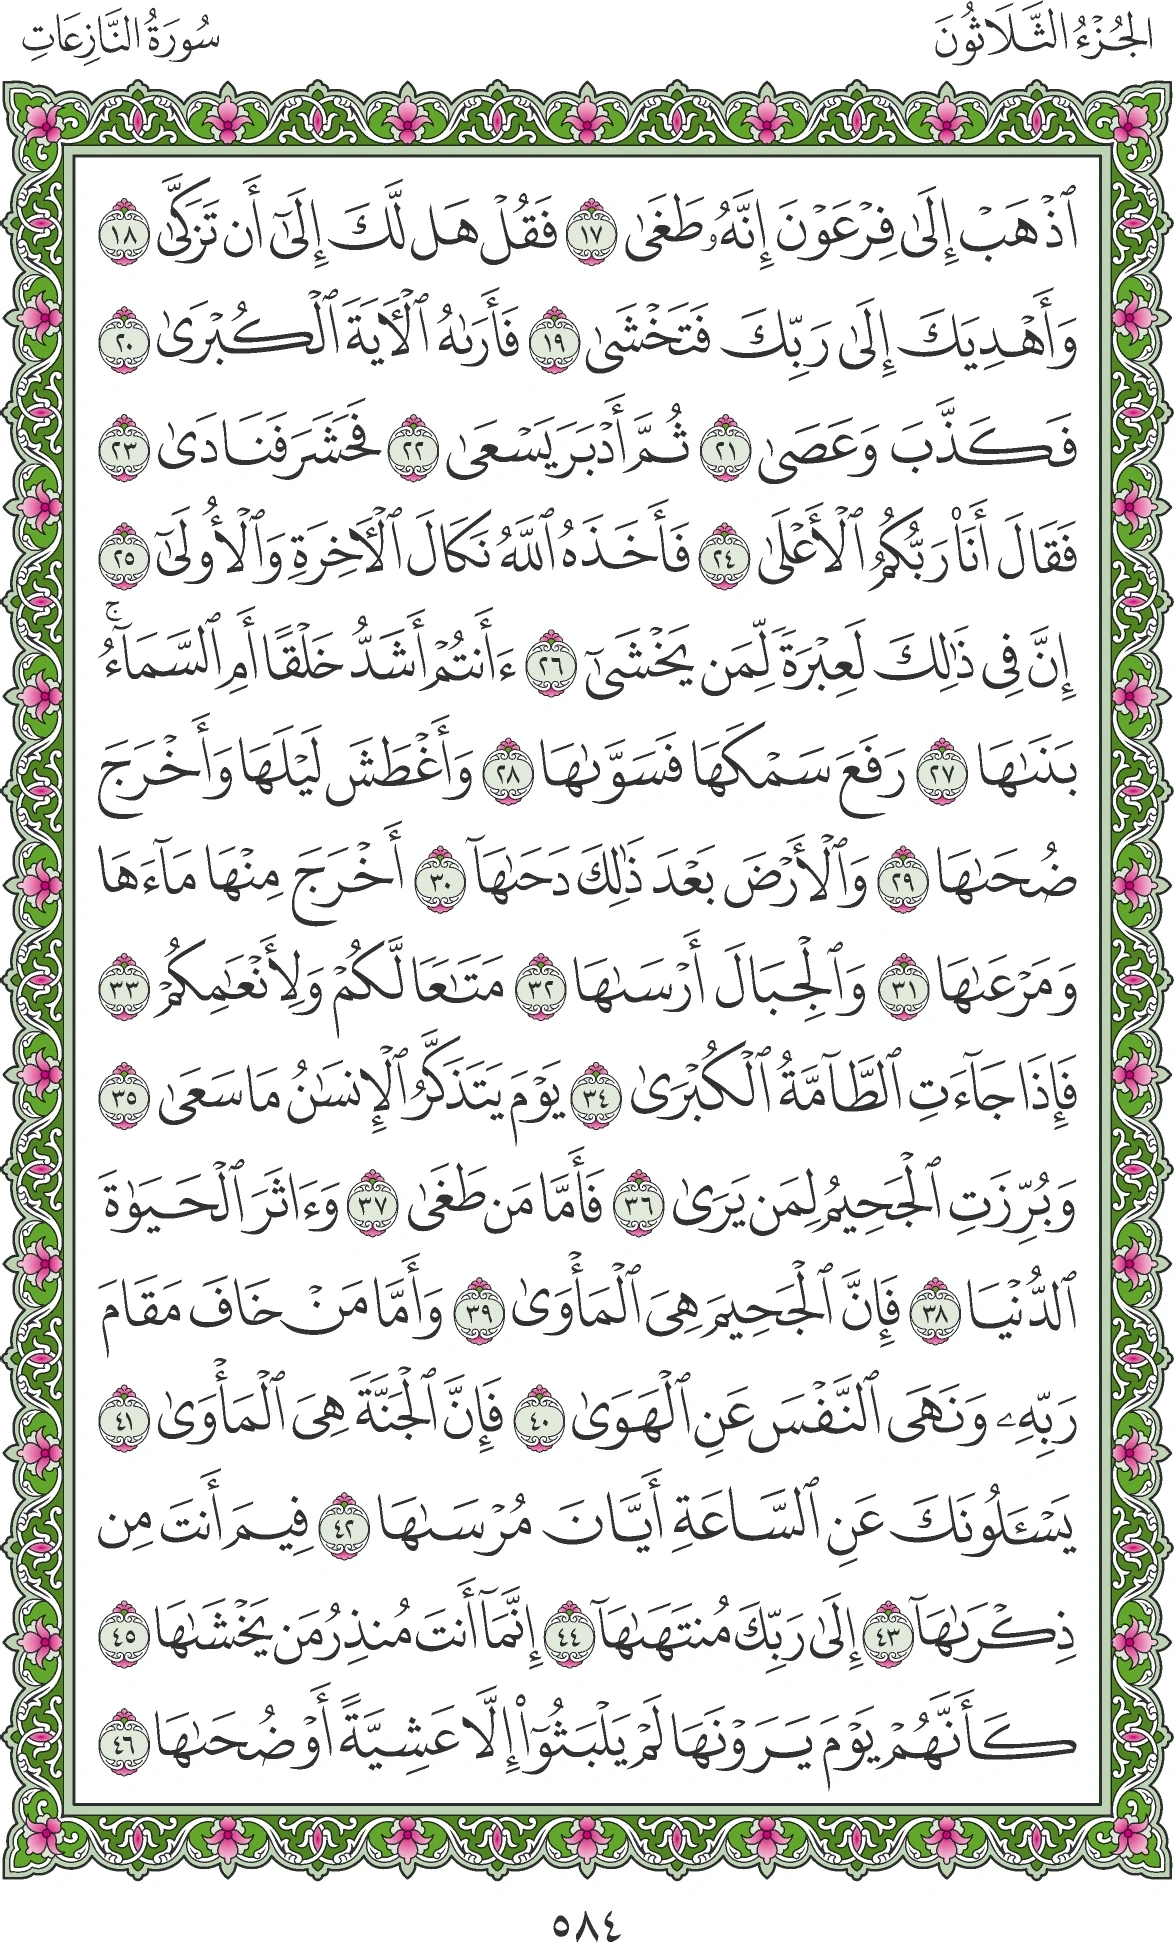 الجُزْءُ الثَّلَاثُونَ
سُورَةُ النَّازِعَاتِ
ٱذْهَبْ إِلَىٰ فِرْعَوْنَ إِنَّهُۥ طَغَىٰ ١٧ فَقُلْ هَل لَّكَ إِلَىٰٓ أَن تَزَكَّىٰ ١٨
وَأَهْدِيَكَ إِلَىٰ رَبِّكَ فَتَخْشَىٰ ١٩ فَأَرَىٰهُ ٱلْءَايَةَ ٱلْكُبْرَىٰ ٢٠
فَكَذَّبَ وَعَصَىٰ ٢١ ثُمَّ أَدْبَرَ يَسْعَىٰ ٢٢ فَحَشَرَ فَنَادَىٰ ٢٣
فَقَالَ أَنَا۠ رَبُّكُمُ ٱلْأَعْلَىٰ ٢٤ فَأَخَذَهُ ٱللَّهُ نَكَالَ ٱلْءَاخِرَةِ وَٱلْأُولَىٰٓ ٢٥
إِنَّ فِى ذَٰلِكَ لَعِبْرَةً لِّمَن يَخْشَىٰٓ ٢٦ ءَأَنتُمْ أَشَدُّ خَلْقًا أَمِ ٱلسَّمَآءُ ۚ
بَنَىٰهَا ٢٧ رَفَعَ سَمْكَهَا فَسَوَّىٰهَا ٢٨ وَأَغْطَشَ لَيْلَهَا وَأَخْرَجَ
ضُحَىٰهَا ٢٩ وَٱلْأَرْضَ بَعْدَ ذَٰلِكَ دَحَىٰهَآ ٣٠ أَخْرَجَ مِنْهَا مَآءَهَا
وَمَرْعَىٰهَا ٣١ وَٱلْجِبَالَ أَرْسَىٰهَا ٣٢ مَتَٰعًا لَّكُمْ وَلِأَنْعَٰمِكُمْ ٣٣
فَإِذَا جَآءَتِ ٱلطَّآمَّةُ ٱلْكُبْرَىٰ ٣٤ يَوْمَ يَتَذَكَّرُ ٱلْإِنسَٰنُ مَا سَعَىٰ ٣٥
وَبُرِّزَتِ ٱلْجَحِيمُ لِمَن يَرَىٰ ٣٦ فَأَمَّا مَن طَغَىٰ ٣٧ وَءَاثَرَ ٱلْحَيَوٰةَ
ٱلدُّنْيَا ٣٨ فَإِنَّ ٱلْجَحِيمَ هِىَ ٱلْمَأْوَىٰ ٣٩ وَأَمَّا مَنْ خَافَ مَقَامَ
رَبِّهِۦ وَنَهَى ٱلنَّفْسَ عَنِ ٱلْهَوَىٰ ٤٠ فَإِنَّ ٱلْجَنَّةَ هِىَ ٱلْمَأْوَىٰ ٤١
يَسْـَٔلُونَكَ عَنِ ٱلسَّاعَةِ أَيَّانَ مُرْسَىٰهَا ٤٢ فِيمَ أَنتَ مِن
ذِكْرَىٰهَآ ٤٣ إِلَىٰ رَبِّكَ مُنتَهَىٰهَآ ٤٤ إِنَّمَآ أَنتَ مُنذِرُ مَن يَخْشَىٰهَا ٤٥
كَأَنَّهُمْ يَوْمَ يَرَوْنَهَا لَمْ يَلْبَثُوٓا۟ إِلَّا عَشِيَّةً أَوْ ضُحَىٰهَا ٤٦
٥٨٤